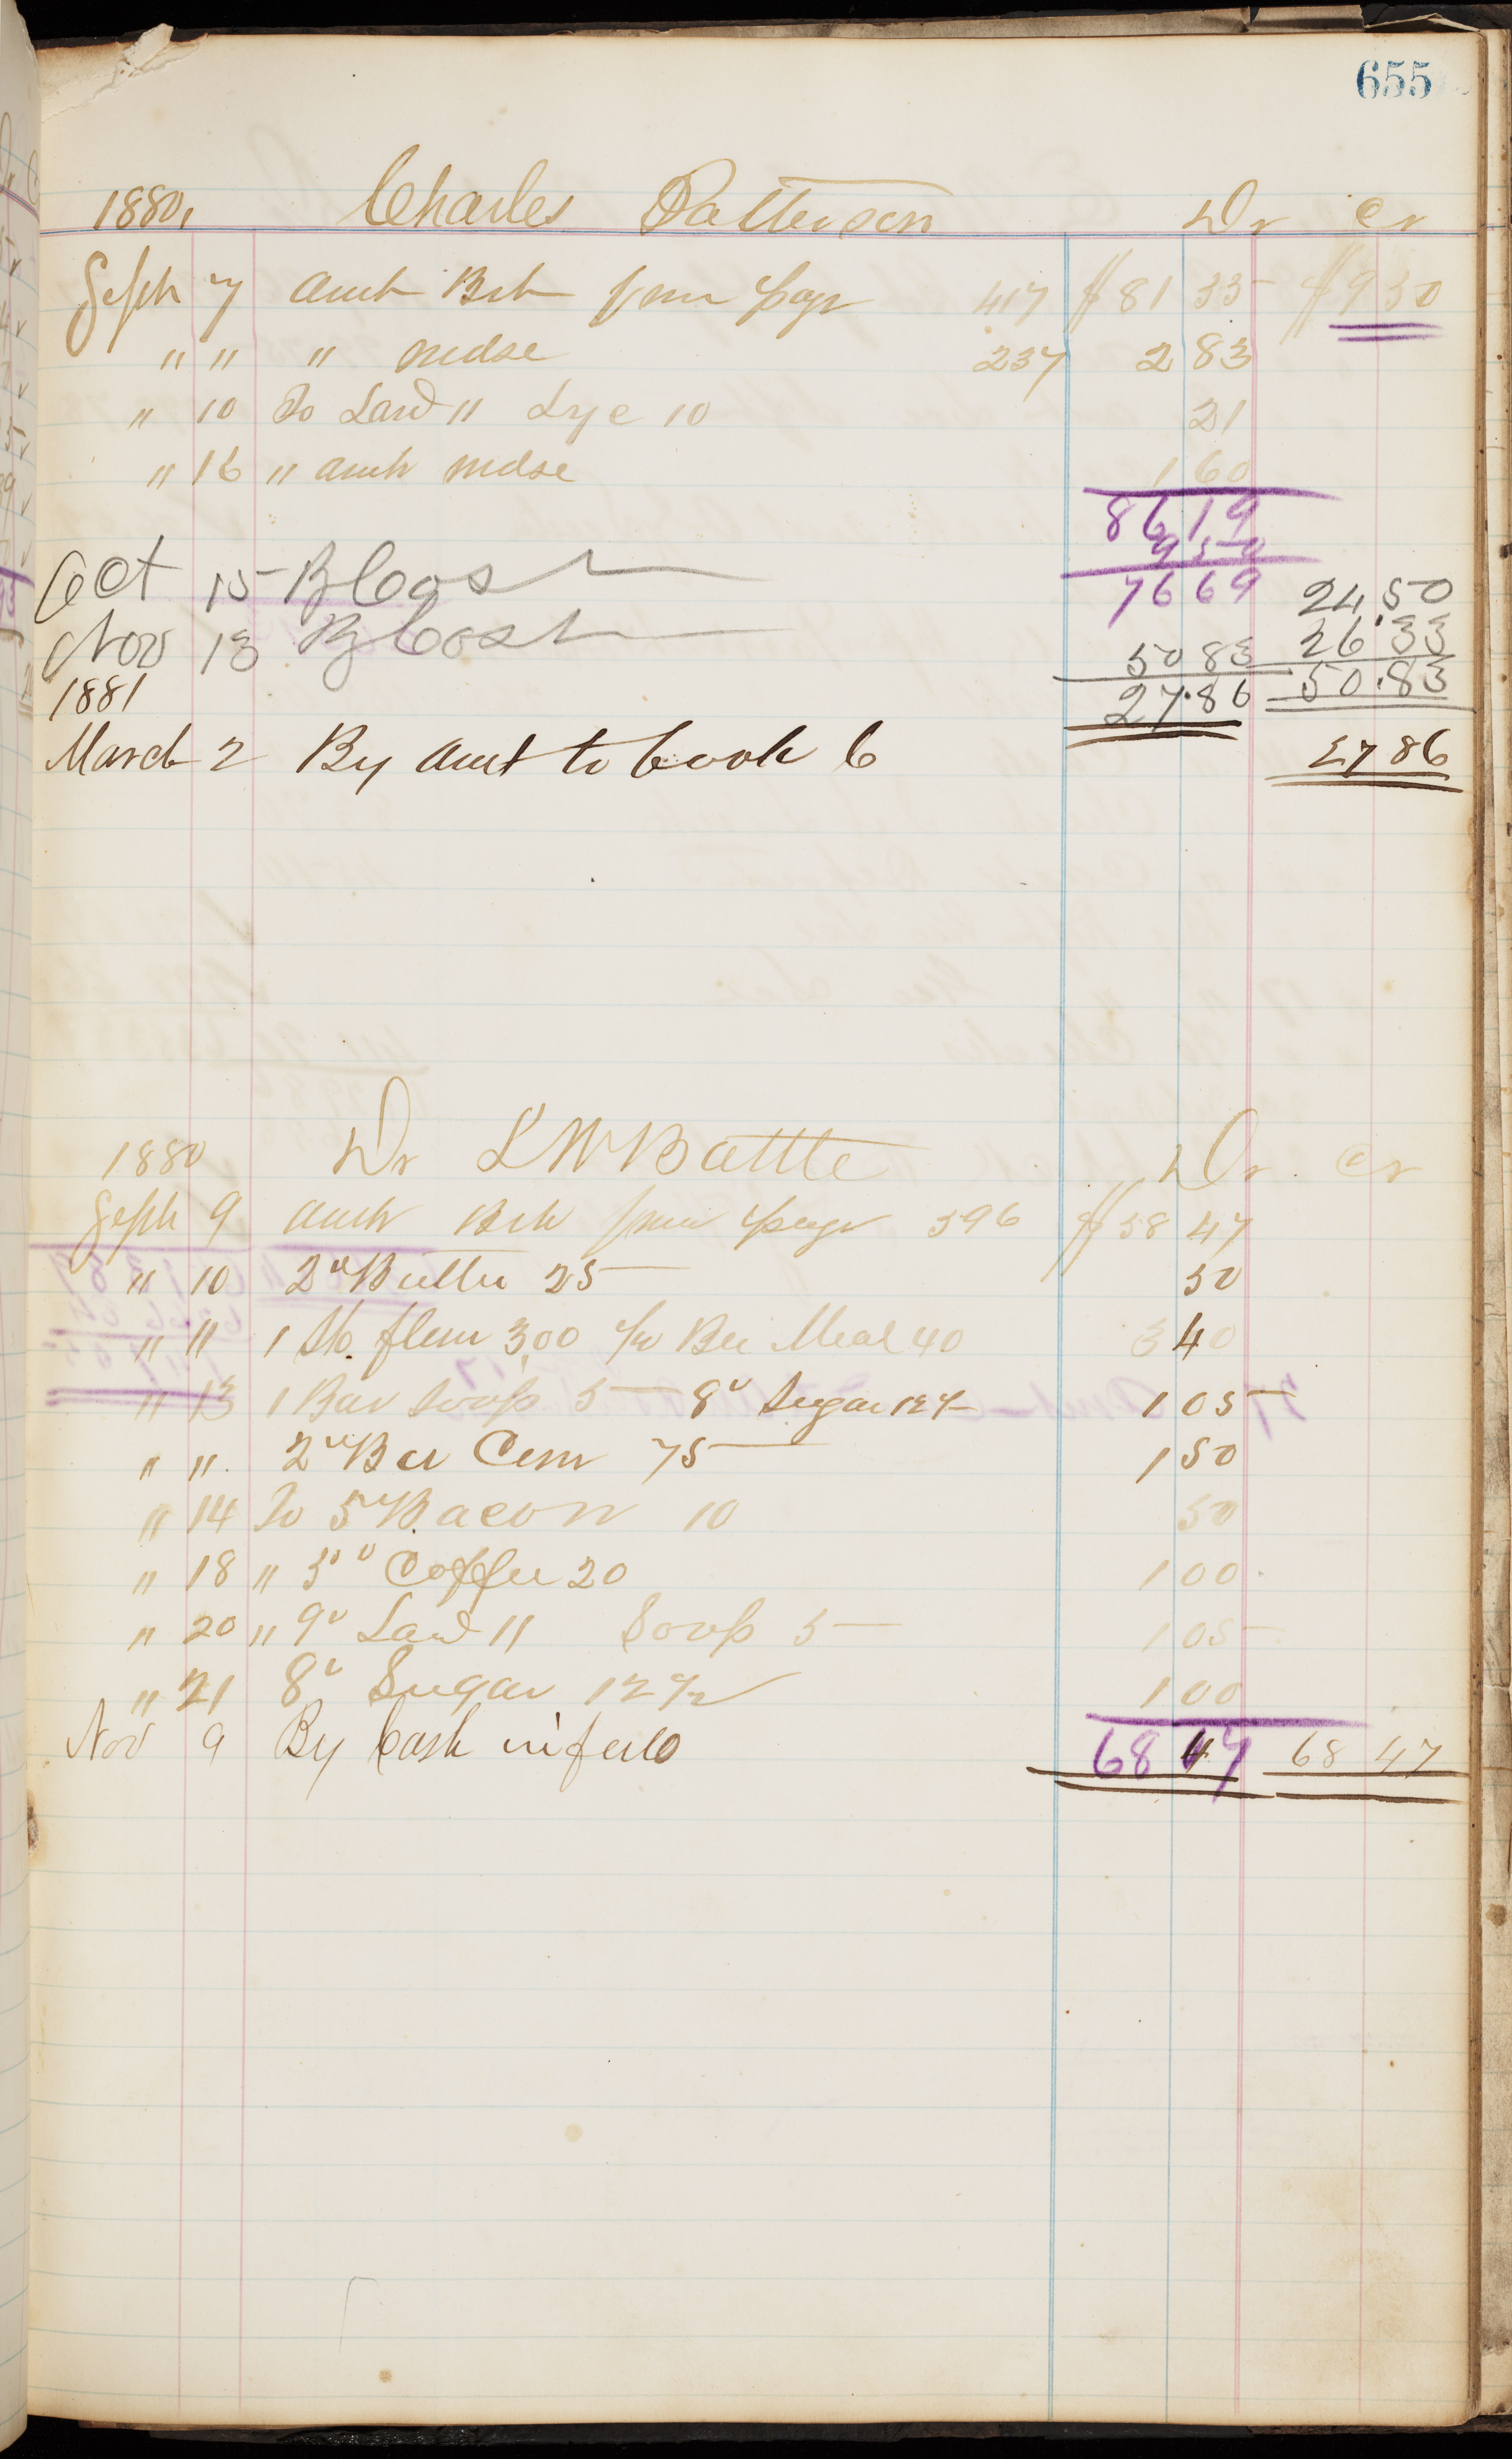 655
1880, Charles Patterson Dr Cr
Sept 7 Amt Brt from page 417 $81 35 $9 50
" " " mdse 237 2 83
" 10 To Lard 11 Lye 10 21
" 16 " amt mdse 1 60
86 19
9 50
Oct 15 By Cash 76 69 24,50
Nov 13 By Cash 50 83 26.33
1881 27.86 50.83
March 2 By Amt to book 6 27 86
1880 Dr L W Battle Dr Cr
Sept 9 Amt Brt from page 396 $58 47
" 10 2" Butter 25 50
" " 1 Sk. flour 3,00 1/2 Bu Meal 40 3 40
" 13 1 Bar Soap 5 8" Sugar 12 1/2 1 05
" " 2" Bu Corn 75 1 50
" 14 To 5" Bacon 10 50
" 18 " 5" Coffee 20 1 00
" 20 " 9" Lard 11 Soap 5 1 05
" 21 8" Sugar 12 1/2 1 00
Nov 9 By Cash in full 68 47 68 47